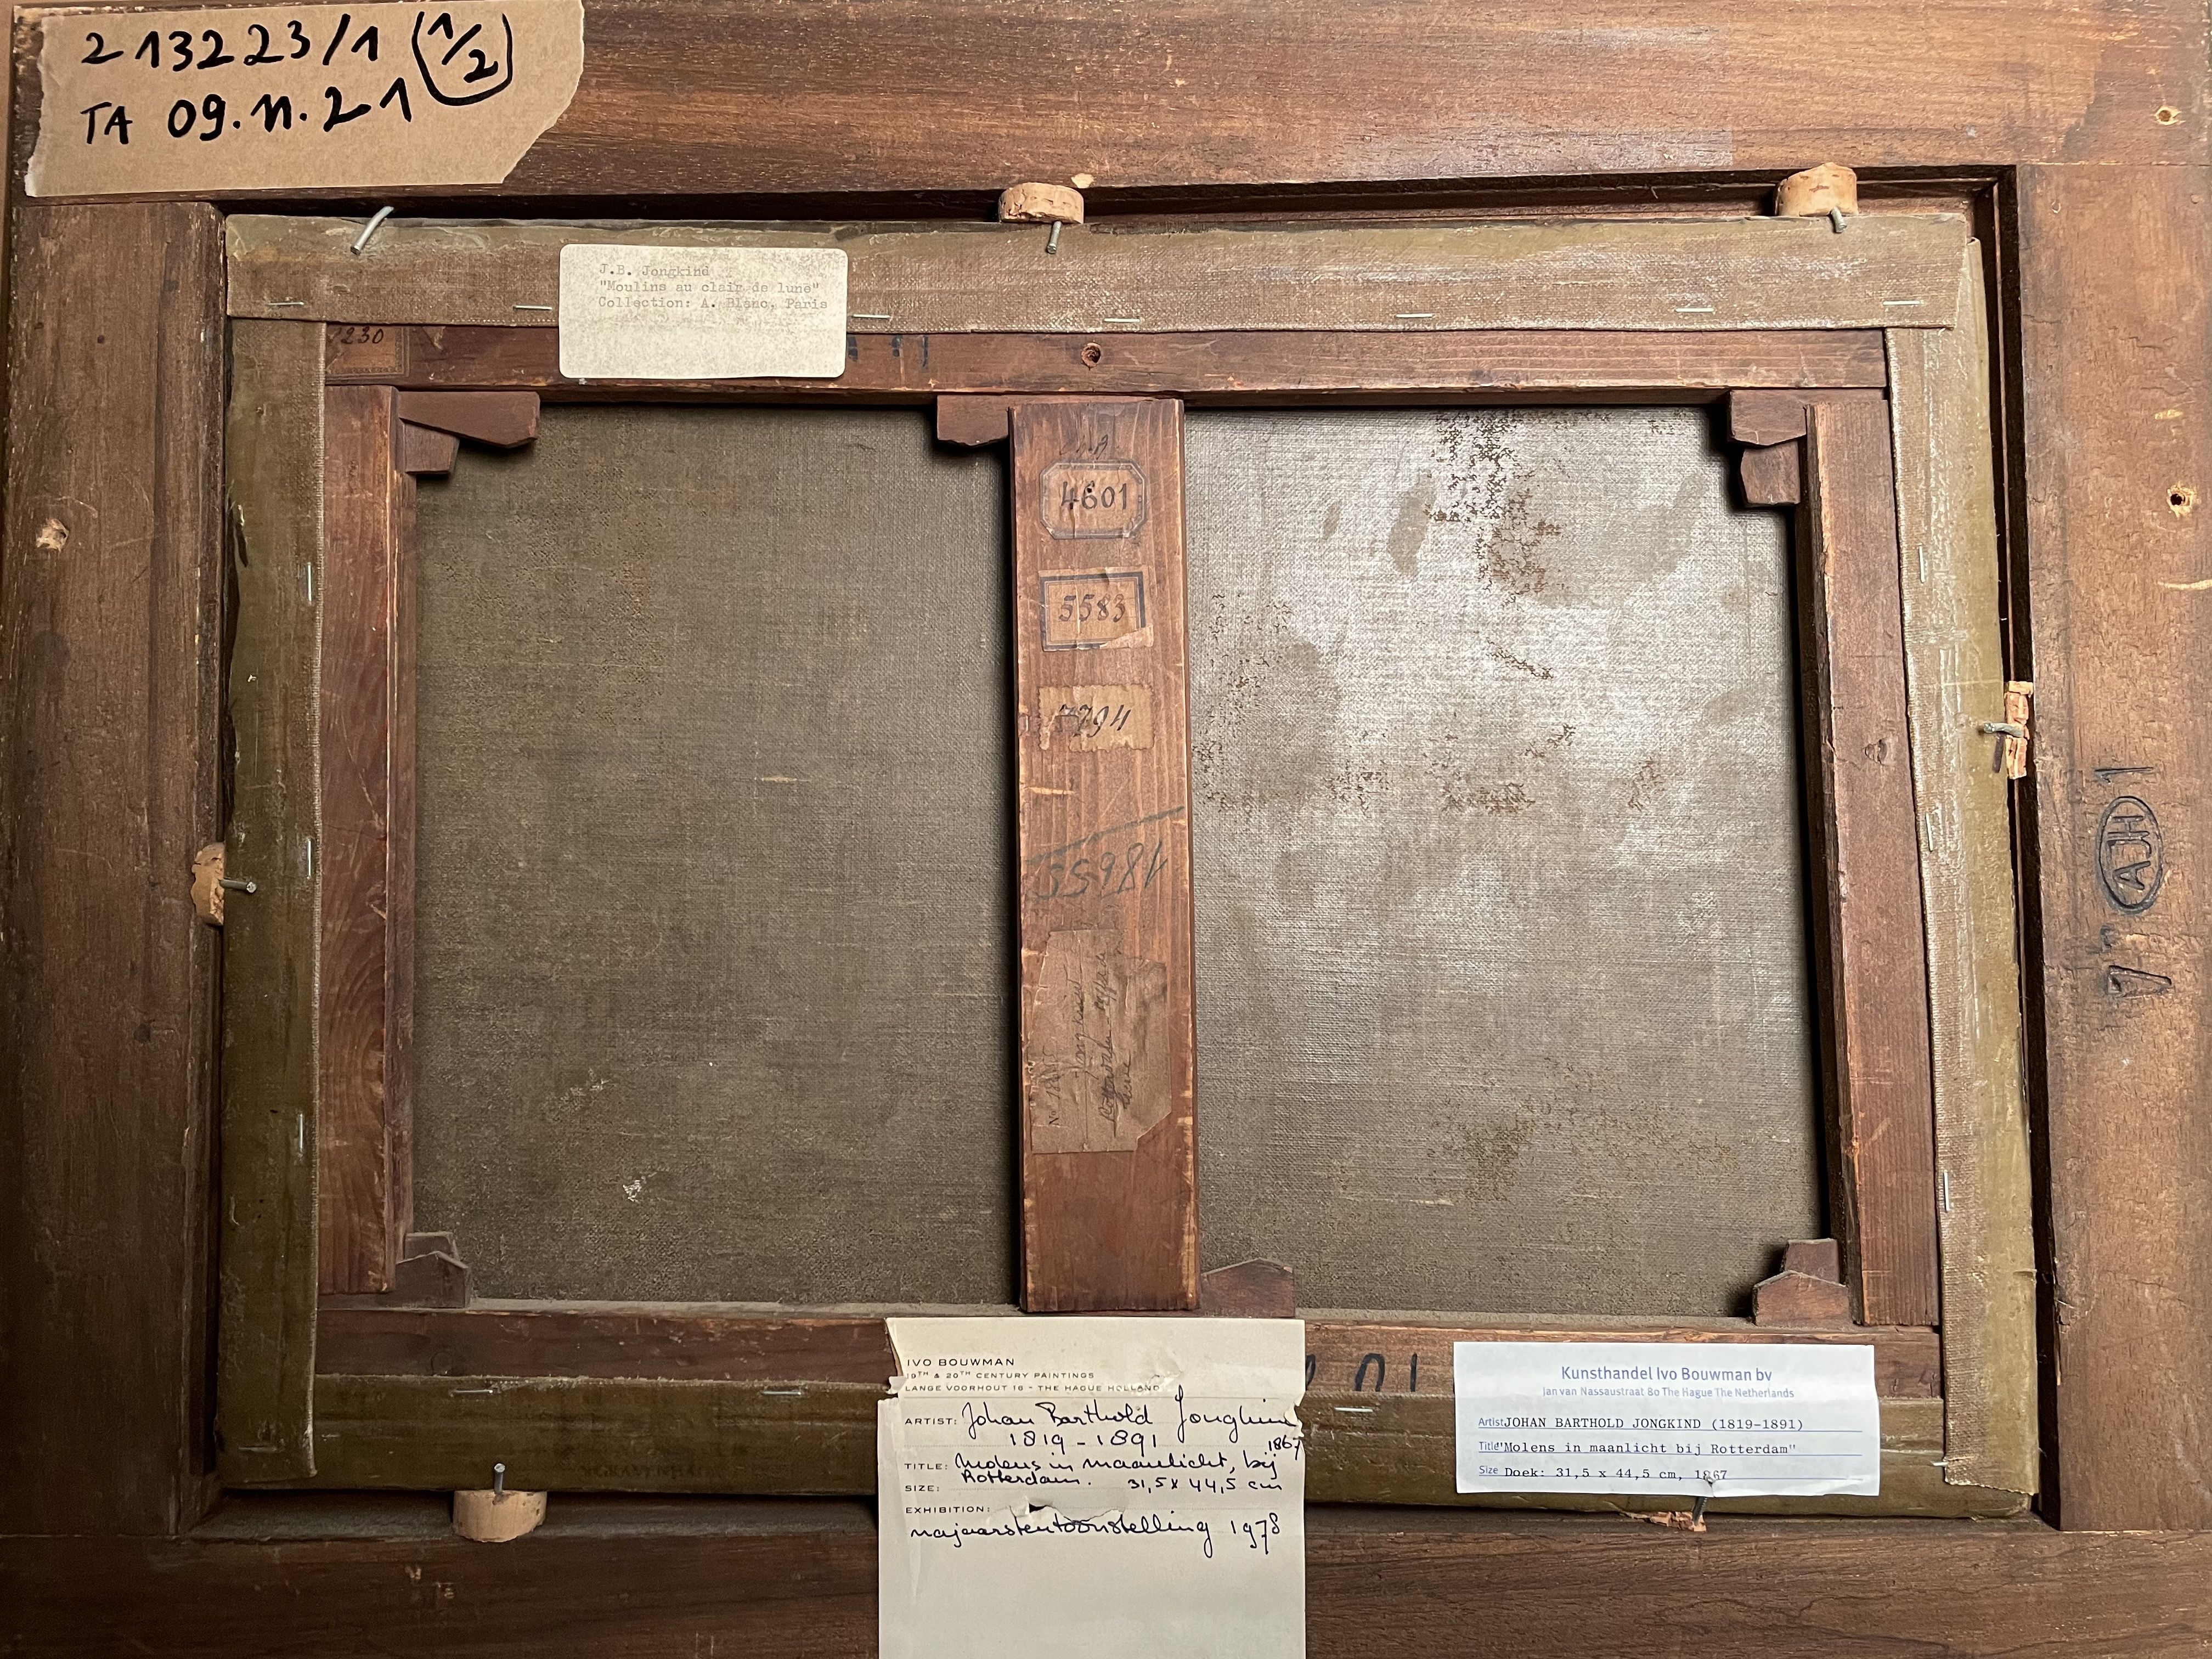 213223/1 (1/2)
TA 09.11.21
J.B. Jongkind
"Moulins au clair de lune"
Collection: A. Blanc, Paris
230
4601
5583
7794
18655
No
Jongkind
AJH
IVO BOUWMAN
19TH & 20TH CENTURY PAINTINGS
LANGE VOORHOUT 16 - THE HAGUE HOLLAND
ARTIST: Johan Barthold Jongkind
1819-1891
1867
TITLE: Molens in maanlicht, bij
Rotterdam.
SIZE: 31,5 x 44,5 cm
EXHIBITION:
najaarstentoonstelling 1978
Kunsthandel Ivo Bouwman bv
Jan van Nassaustraat 80 The Hague The Netherlands
Artist JOHAN BARTHOLD JONGKIND (1819-1891)
Title "Molens in maanlicht bij Rotterdam"
Size Doek: 31,5 x 44,5 cm, 1867